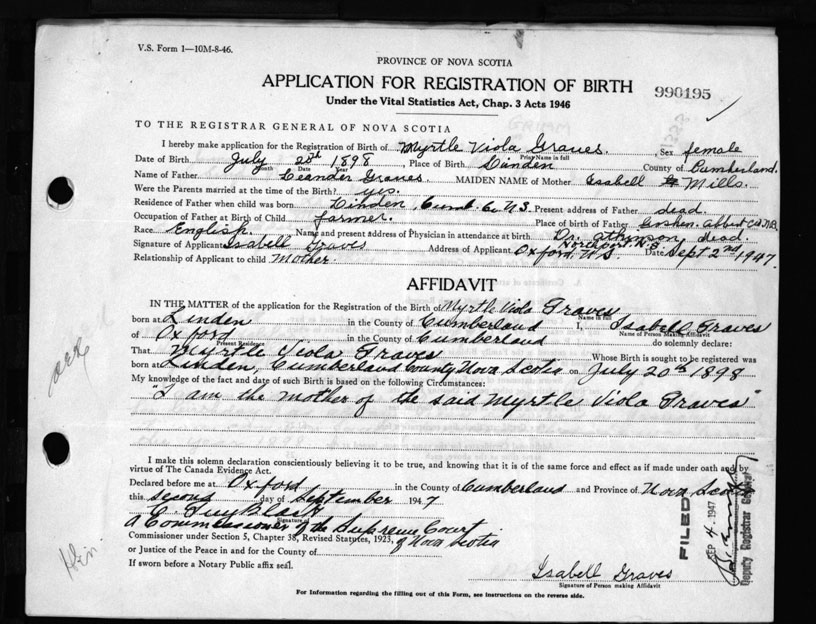 V.S. Form 1—10M-8-46.
PROVINCE OF NOVA SCOTIA
APPLICATION FOR REGISTRATION OF BIRTH
990195
Under the Vital Statistics Act, Chap. 3 Acts 1946
TO THE REGISTRAR GENERAL OF NOVA SCOTIA
I hereby make application for the Registration of Birth of Myrtle Viola Graves. Sex female
Print Name in full
Date of Birth July 20th 1898 Place of Birth Linden County of Cumberland.
Month Date Year
Name of Father Leander Graves MAIDEN NAME of Mother Isabell Mills.
Were the Parents married at the time of the Birth? yes.
Residence of Father when child was born Linden, Cumb. Co. N.S. Present address of Father dead.
Occupation of Father at Birth of Child farmer. Place of birth of Father Goshen. Albert Co. N.B.
Race English. Name and present address of Physician in attendance at birth Dr. dead.
Signature of Applicant Isabell Graves Address of Applicant Oxford N.S. Date Sept 2nd 1947.
Relationship of Applicant to child Mother.
AFFIDAVIT
IN THE MATTER of the application for the Registration of the Birth of Myrtle Viola Graves
Name in full
born at Linden in the County of Cumberland I, Isabell Graves
Name of Person Making Affidavit
of Oxford in the County of Cumberland do solemnly declare:
Present Residence
That Myrtle Viola Graves Whose Birth is sought to be registered was
born at Linden, Cumberland County Nova Scotia on July 20th 1898
My knowledge of the fact and date of such Birth is based on the following Circumstances:
"I am the mother of the said Myrtle Viola Graves"
I make this solemn declaration conscientiously believing it to be true, and knowing that it is of the same force and effect as if made under oath and by
virtue of The Canada Evidence Act.
Declared before me at Oxford in the County of Cumberland and Province of Nova Scotia
this second day of September 1947
C. Guy Black
Signature of
A Commissioner of the Supreme Court
Commissioner under Section 5, Chapter 38, Revised Statutes, 1923, of Nova Scotia
or Justice of the Peace in and for the County of
If sworn before a Notary Public affix seal.
FILED
SEP 4 1947
Deputy Registrar General
Isabell Graves
Signature of Person making Affidavit
For Information regarding the filling out of this Form, see instructions on the reverse side.